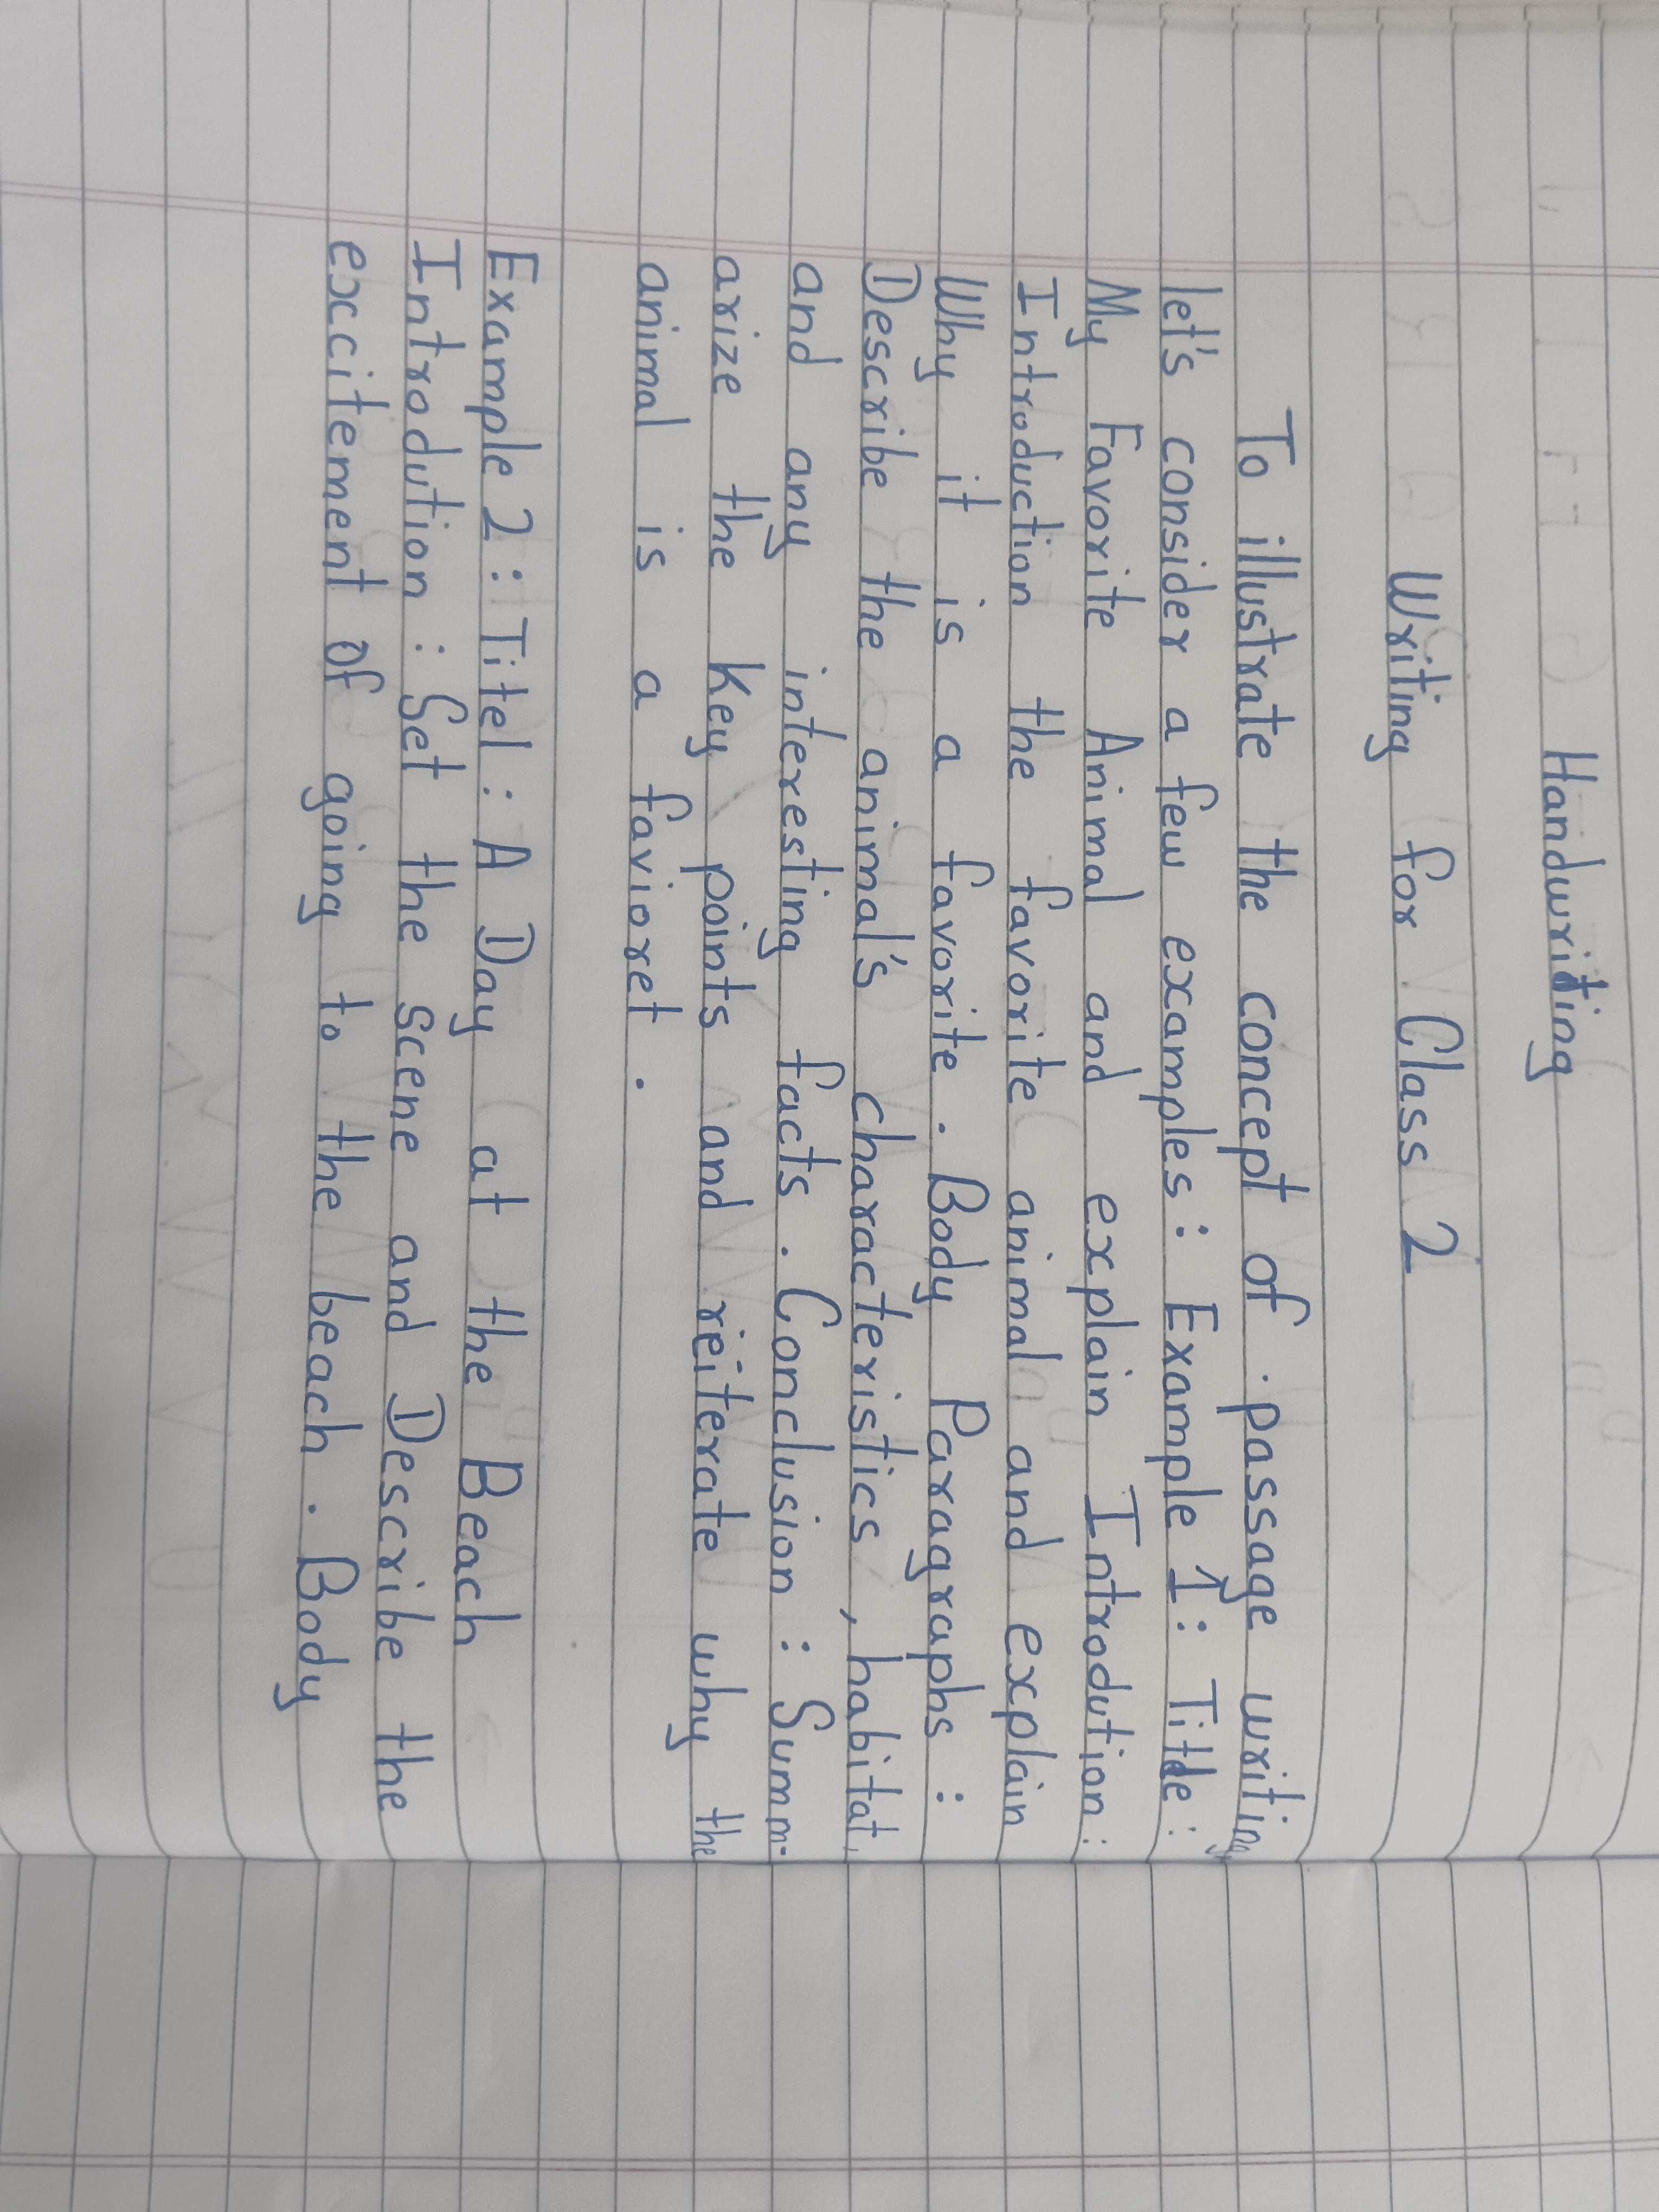 Handwriting
Writing for Class 2
To illustrate the concept of passage writing
let's consider a few examples: Example 1: Title:
My Favorite Animal and explain Introdution:
Introduction the favorite animal and explain
Why it is a favorite. Body Paragraphs:
Describe the animal's characteristics, habitat,
and any interesting facts. Conclusion: Summ-
arize the Key points and reiterate why the
animal is a favioret.
Example 2: Titel: A Day at the Beach
Introdution: Set the scene and Describe the
excitement of going to the beach. Body